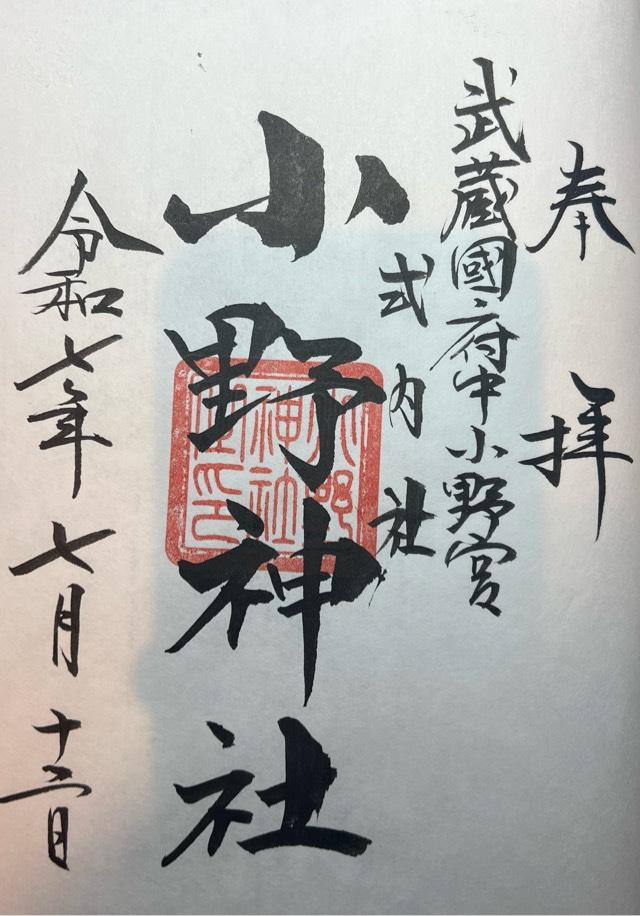 奉拝
武蔵國府中小野宮
式内社
小野神社
小野
神社
御印
令和七年七月十二日